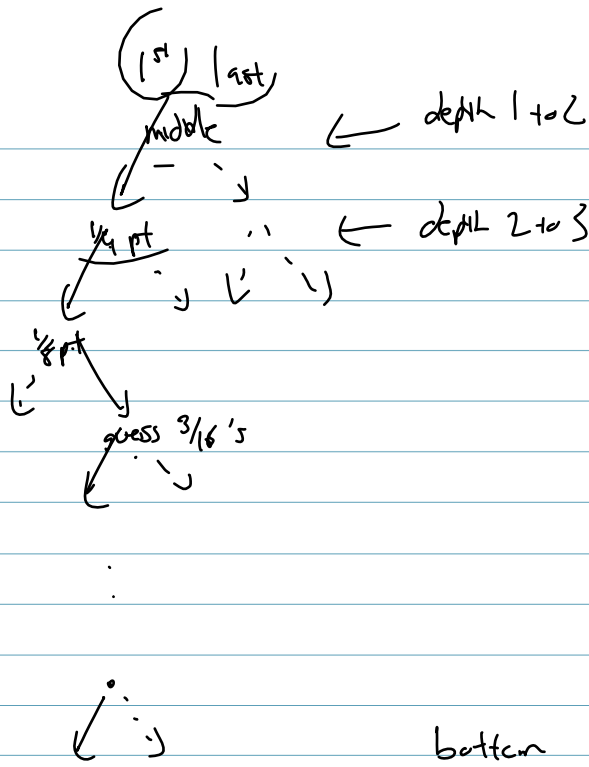 1st last
middle
depth 1 to 2
1/4 pt
depth 2 to 3
1/8 pt
guess 3/16's
bottom